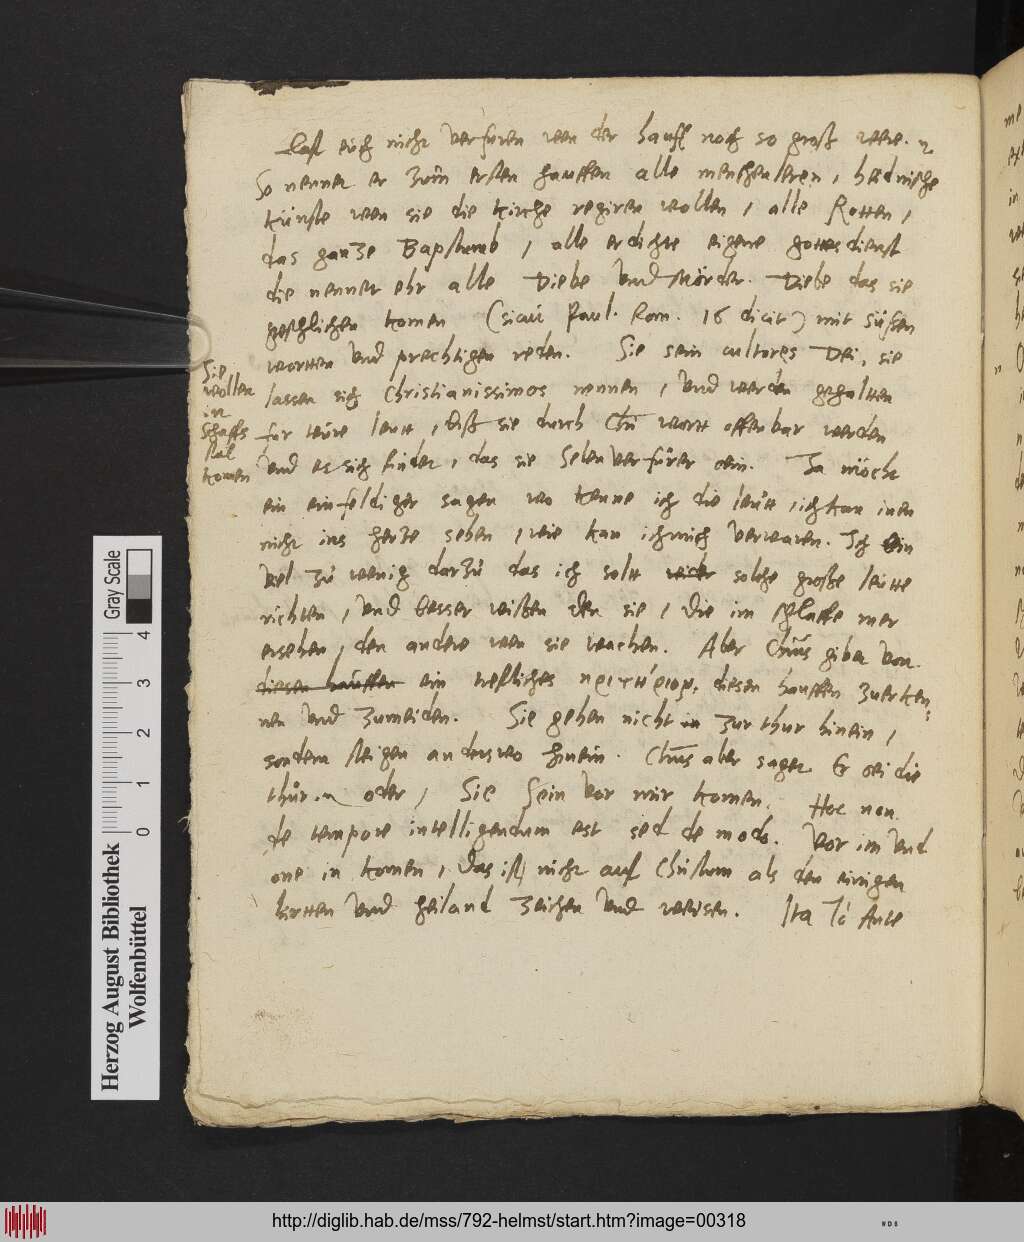 Last euch nicht verfuren wen der hauff noch so groß were. ꝛc
So nennet er zum ersten hauffen alle menschenleren, heidnische
künste wen sie die kirche regiren wollen, alle Rotten,
das ganze Bapstumb, alle erdichte eigene gottesdienst
die nennet ehr alle Diebe und Mörder. Diebe das sie
geschlichen komen (sicut Paul. Rom. 16 dicit) mit süssen
wortten und prechtigen reden. Sie sein cultores Dei, sie
lassen sich Christianissimos nennen, und werden gehaltten
Sie
wollen
in
Schaffs
komen
for leutt, biß sie durch Chri wortt offenbar werden
und es sich findet, das sie Selenverfürer sein. Ja möcht
ein einfeldiger sagen wo kenne ich die leutt, ich kan inen
nicht ins hertze sehen, wie kan ich mich verwaren. Ich bin
viel zu wenig darzu das ich soltt solche große leutte
richten, und besser wißen den sie, die im schlaffe mer
ersehen, den andere wen sie wachen. Aber Christus gibet von
diesen hauffen ein treflichs κριτήριον, diesen hauffen zuerken-
nen und zumeiden. Sie gehen nicht in zur thur hinein,
sondern steigen anderswo hinein. Christus aber saget Er sei die
thür. oder, Sie sein vor mir komen. Hoc non
de tempore intelligendum est sed de modo. Vor im und
one in komen, das ist, nicht auf Christum als den einigen
hirtten und heiland zeichen und weisen. Ita